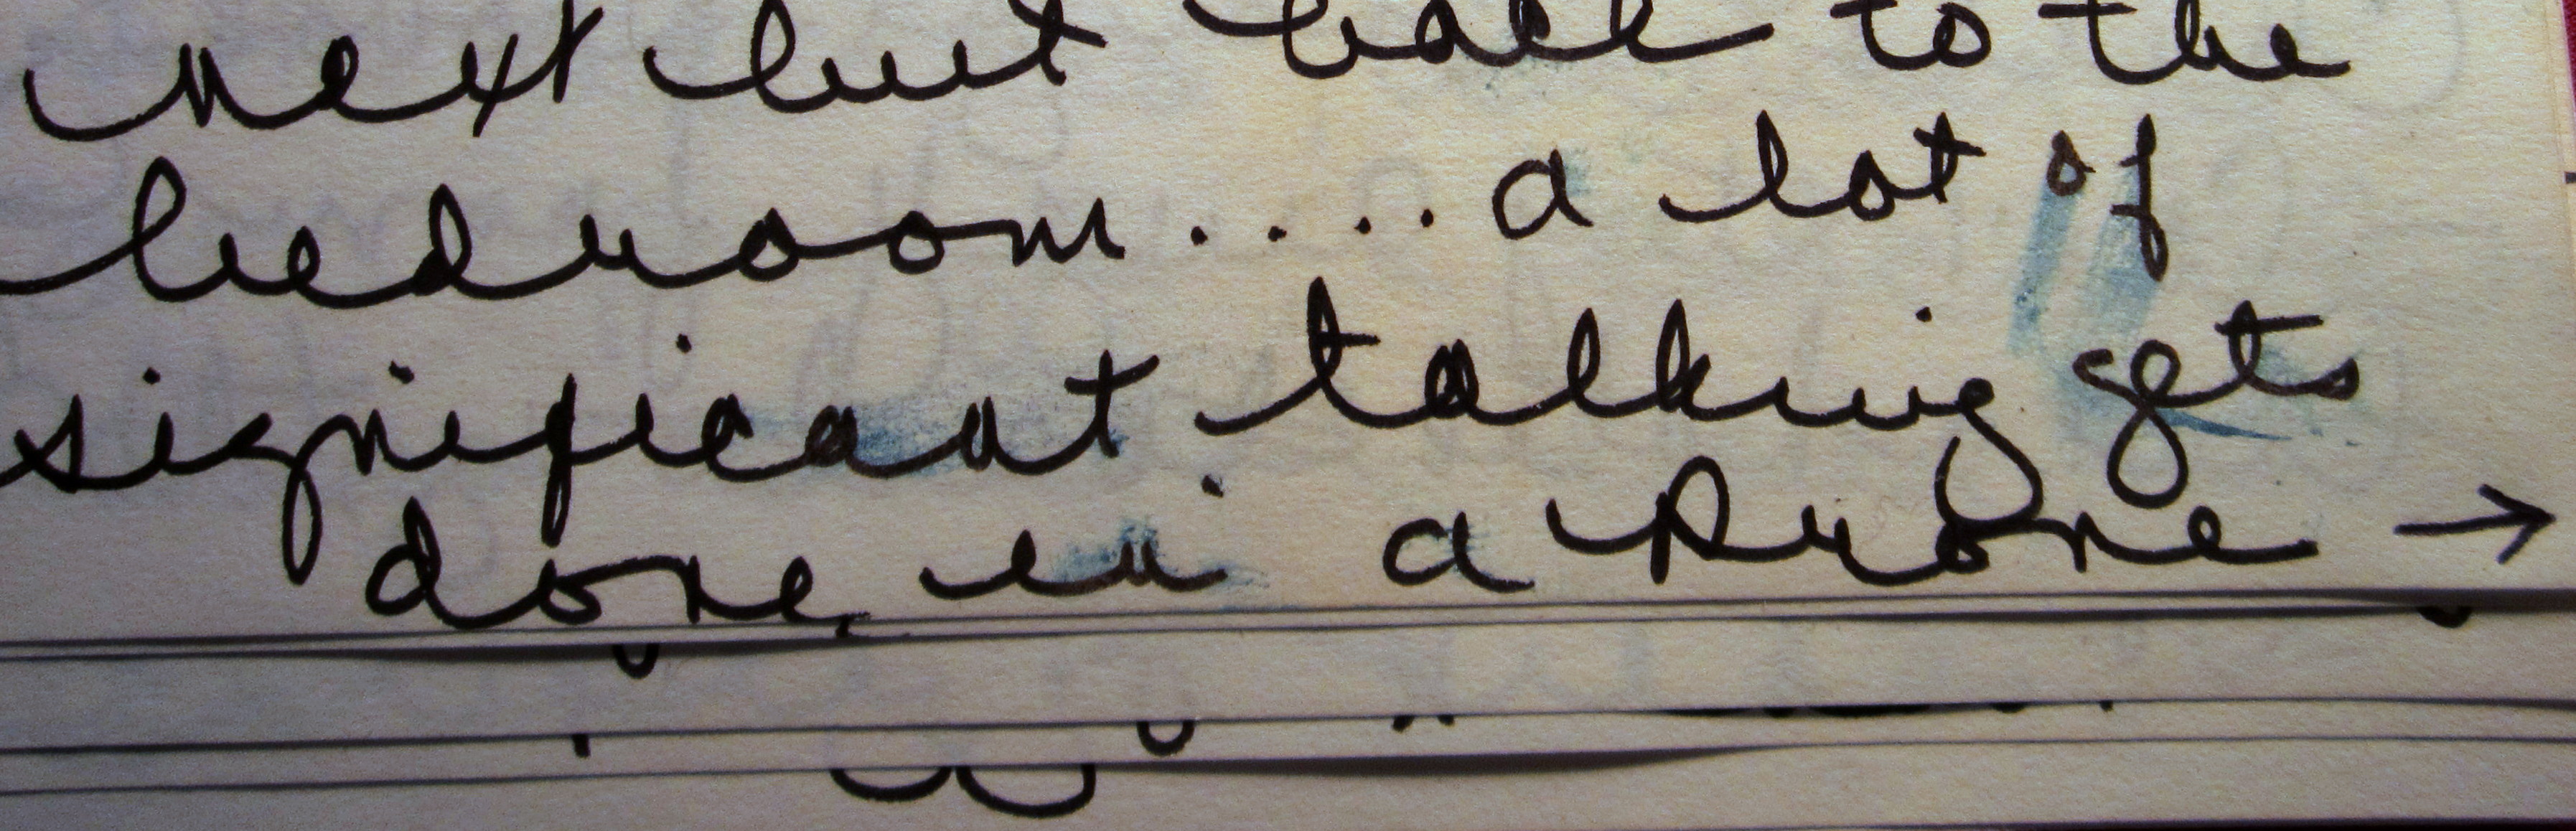 next but back to the
bedroom.... a lot of
significant talking gets
done in a prone →